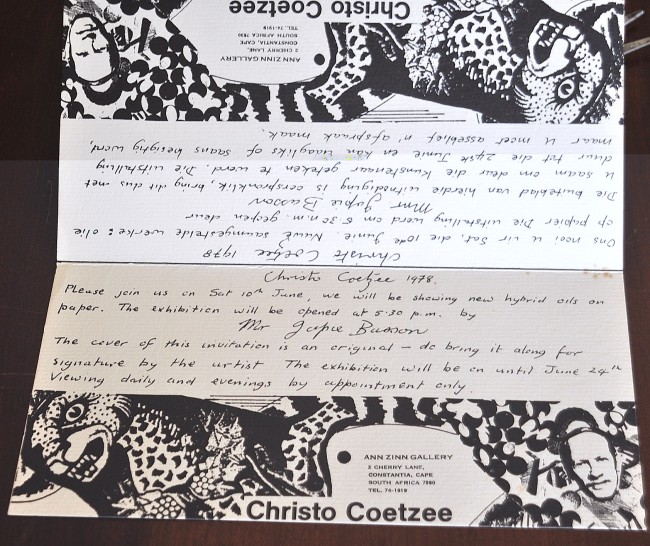 Christo Coetzee 1978
Ons nooi u vir Sat. die 10de Junie. Nuwe saamgestelde werke: olie
op papier Die uitstalling word om 5.30 n.m. geopen deur
Mnr Japie Basson
Die buiteblad van hierdie uitnodiging is oorspronklik, bring dit dus met
u saam om deur die kunstenaar geteken te word. Die uitstalling
duur tot die 24ste Junie en kan daagliks of saans besigtig word,
maar u moet asseblief 'n afspraak maak.
ANN ZINN GALLERY
2 CHERRY LANE,
CONSTANTIA, CAPE
SOUTH AFRICA
TEL. 74-1919
Christo Coetzee
Christo Coetzee 1978.
Please join us on Sat 10th June, we will be showing new hybrid oils on
paper. The exhibition will be opened at 5.30 p.m. by
Mr Japie Basson
The cover of this invitation is an original – do bring it along for
signature by the artist The exhibition will be on until June 24th
Viewing daily and evenings by appointment only.
ANN ZINN GALLERY
2 CHERRY LANE,
CONSTANTIA, CAPE
SOUTH AFRICA
TEL. 74-1919
Christo Coetzee